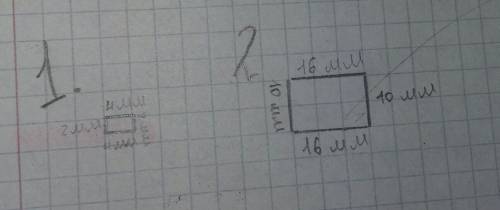 1.
4 мм
2 мм
2 мм
4 мм
2
16 мм
10 мм
10 мм
16 мм